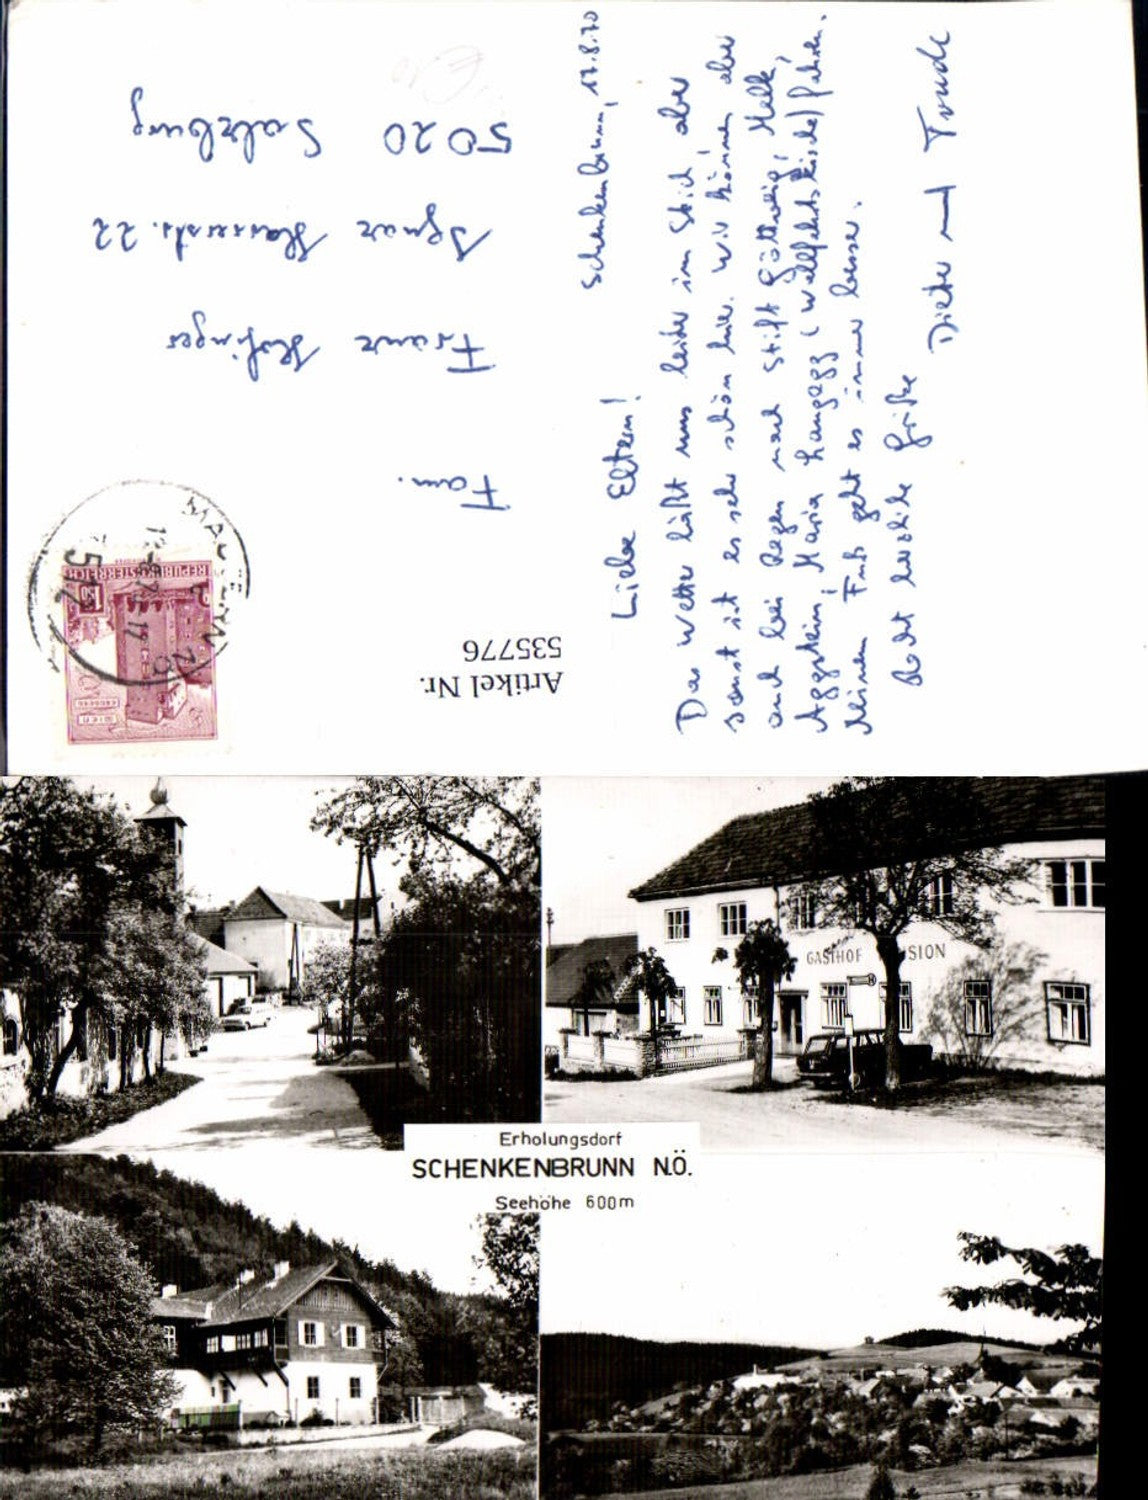 Schenkenbrunn, 17.8.70
Liebe Eltern!
Das Wetter läßt uns leider im Stich aber
sonst ist es sehr schön hier. Wir können aber
auch bei Regen nach Stift Göttweig, Melk,
Aggstein, Maria Langegg (Wallfahrtskirche) fahren.
Meinem Fuß geht es immer besser.
Recht herzliche Grüße
Dieter und Traude
Fam.
Franz
Ignaz 22
5020 Salzburg
Artikel Nr.
535776
REPUBLIK ÖSTERREICH
WIEN
ERDBERG
GASTHOF SION
Erholungsdorf
SCHENKENBRUNN N.Ö.
Seehöhe 600m